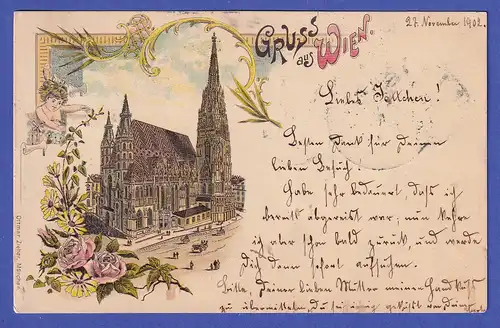 Gruss
aus Wien.
27. November 1902.
Liebes Idchen!
Besten Dank für Deinen
lieben Besuch.
Habe sehr bedauert, dass ich
bereits abgereist war; nun kehre
ich aber schon bald zurück, und werde
Dich dann sofort aufsuchen.
Bitte, Deiner lieben Mutter meinen Handkuss
zu übermitteln, Du sei innig geküsst von Deiner
Ottmar Zieher, München